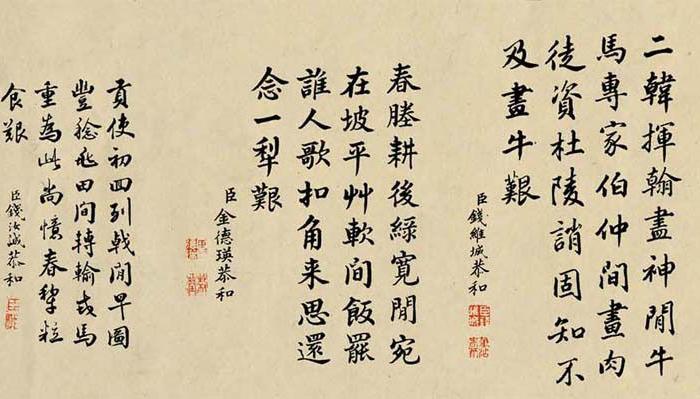 二韓揮翰盡神閒牛
馬專家伯仲間畫肉
徒資杜陵誚固知不
及畫牛艱
臣錢維城恭和
春塍耕後綠寬閒宛
在坡平艸軟間飯罷
誰人歌扣角来思還
念一犁艱
臣金德瑛恭和
貢使初回列戟閒早圖
豐稔田間轉輸馬
重為此尚憶春犁粒
食艱
臣錢汝誠恭和